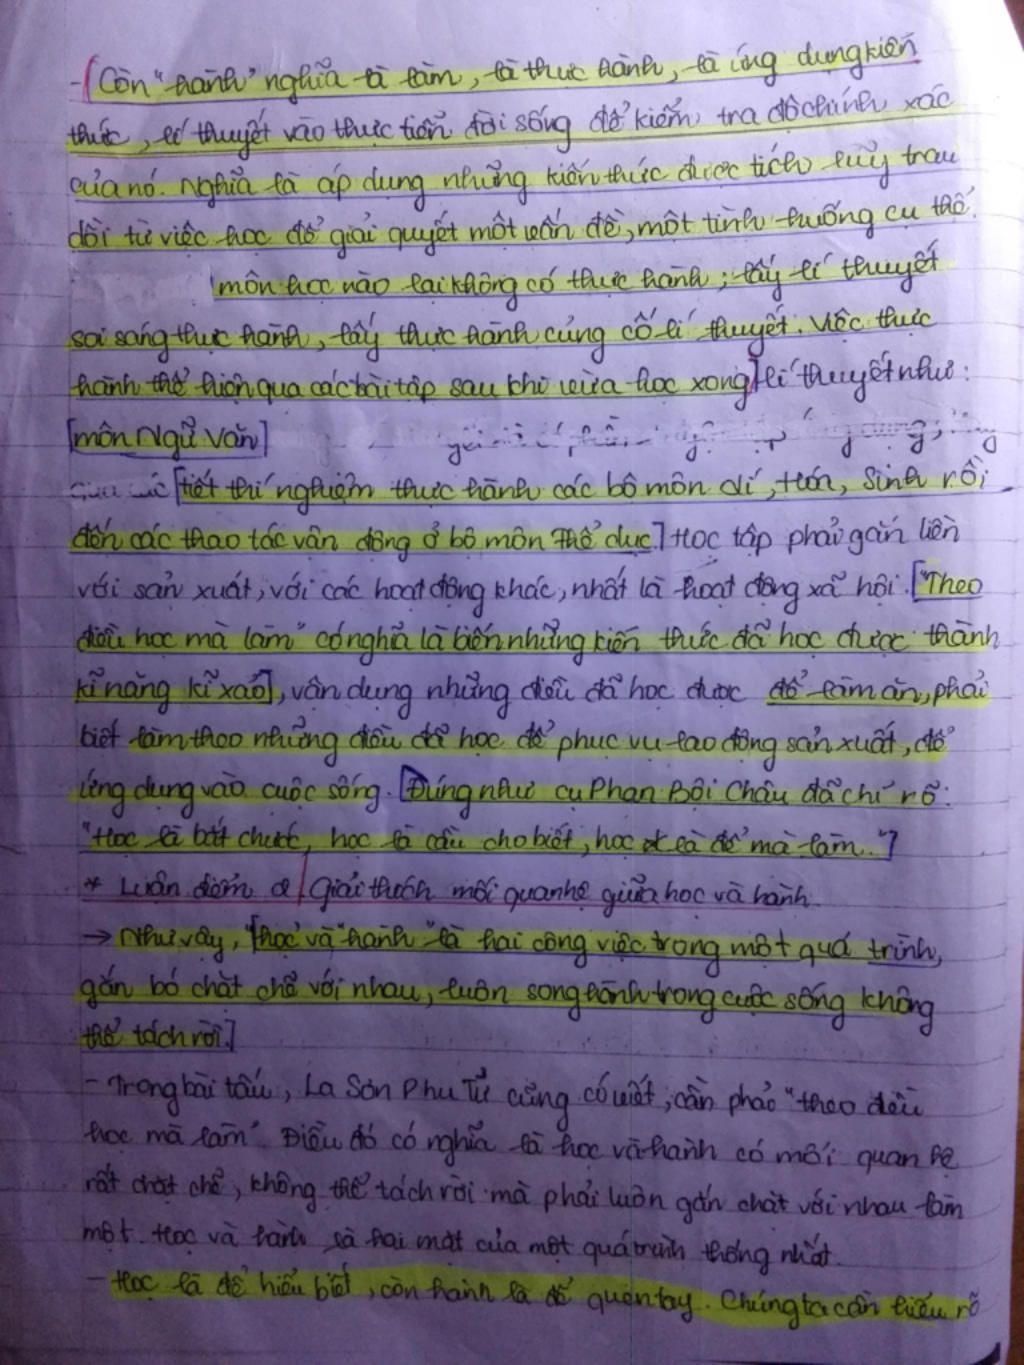 - Còn "hành" nghĩa là làm, là thực hành, là ứng dụng kiến
thức, lí thuyết vào thực tiễn đời sống để kiểm tra độ chính xác
của nó. Nghĩa là áp dụng những kiến thức được tích luỹ trau
dồi từ việc học để giải quyết một vấn đề, một tình huống cụ thể.
môn học nào lại không có thực hành; lấy lí thuyết
soi sáng thực hành, lấy thực hành củng cố lí thuyết. Việc thực
hành thể hiện qua các bài tập sau khi vừa học xong] lí thuyết như:
[môn Ngữ Văn]
[tiết thí nghiệm thực hành các bộ môn Lí, Hóa, Sinh rồi
đến các thao tác vận động ở bộ môn Thể dục.] Học tập phải gắn liền
với sản xuất, với các hoạt động khác, nhất là hoạt động xã hội. ["Theo
điều học mà làm" có nghĩa là biến những kiến thức đã học được thành
kĩ năng kĩ xảo], vận dụng những điều đã học được để làm ăn, phải
biết làm theo những điều đã học để phục vụ lao động sản xuất, để
ứng dụng vào cuộc sống. [Đúng như cụ Phan Bội Châu đã chỉ rõ:
"Học là bắt chước, học là cầu cho biết, học là để mà làm."]
* Luận điểm 2 Giải thích mối quan hệ giữa học và hành.
→ Như vậy, ["học" và "hành" là hai công việc trong một quá trình,
gắn bó chặt chẽ với nhau, luôn song hành trong cuộc sống không
thể tách rời.]
- Trong bài tấu, La Sơn Phu Tử cũng có viết, cần phải "theo điều
học mà làm" Điều đó có nghĩa là học và hành có mối quan hệ
rất chặt chẽ, không thể tách rời mà phải luôn gắn chặt với nhau làm
một. Học và hành là hai mặt của một quá trình thống nhất.
- Học là để hiểu biết, còn hành là để quen tay. Chúng ta cần hiểu rõ